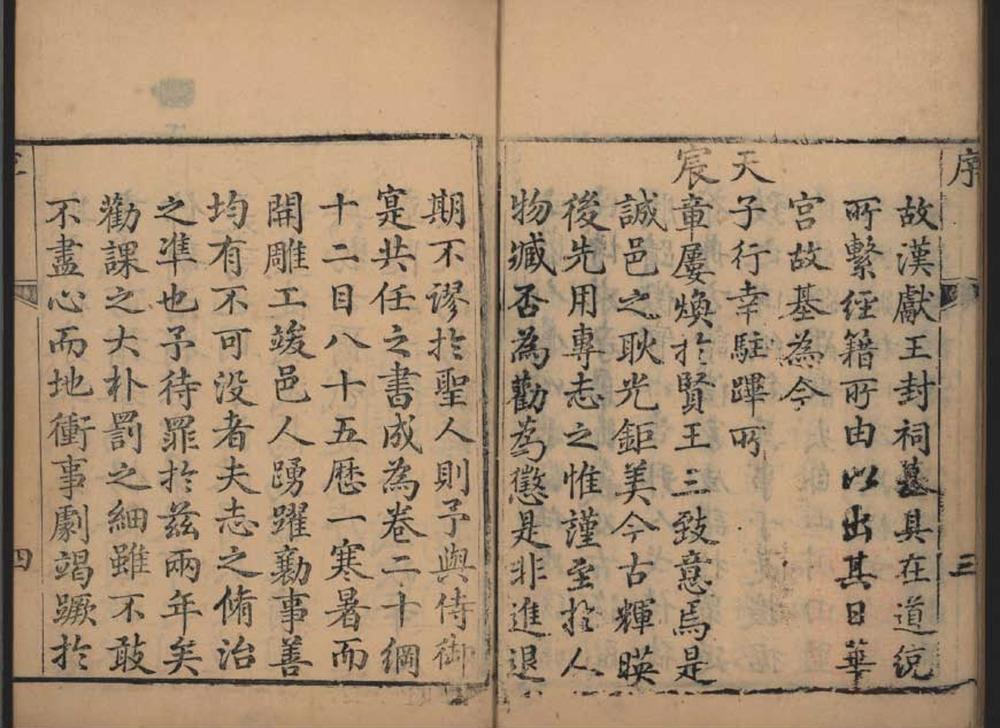 序
故漢獻王封祠墓具在道統
所繫經籍所由以出其日華
宮故基為今
天子行幸駐蹕所
宸章屢煥於賢王三致意焉是
誠邑之耿光鉅美今古輝暎
後先用專志之惟謹至於人
物臧否為勸為懲是非進退
三
期不謬於聖人則予與侍御
寔共任之書成為卷二十綱
十二目八十五歷一寒暑而
開雕工竣邑人踴躍勷事善
均有不可没者夫志之脩治
之凖也予待罪於兹兩年矣
勸課之大朴罰之細雖不敢
不盡心而地衝事劇竭蹶於
四